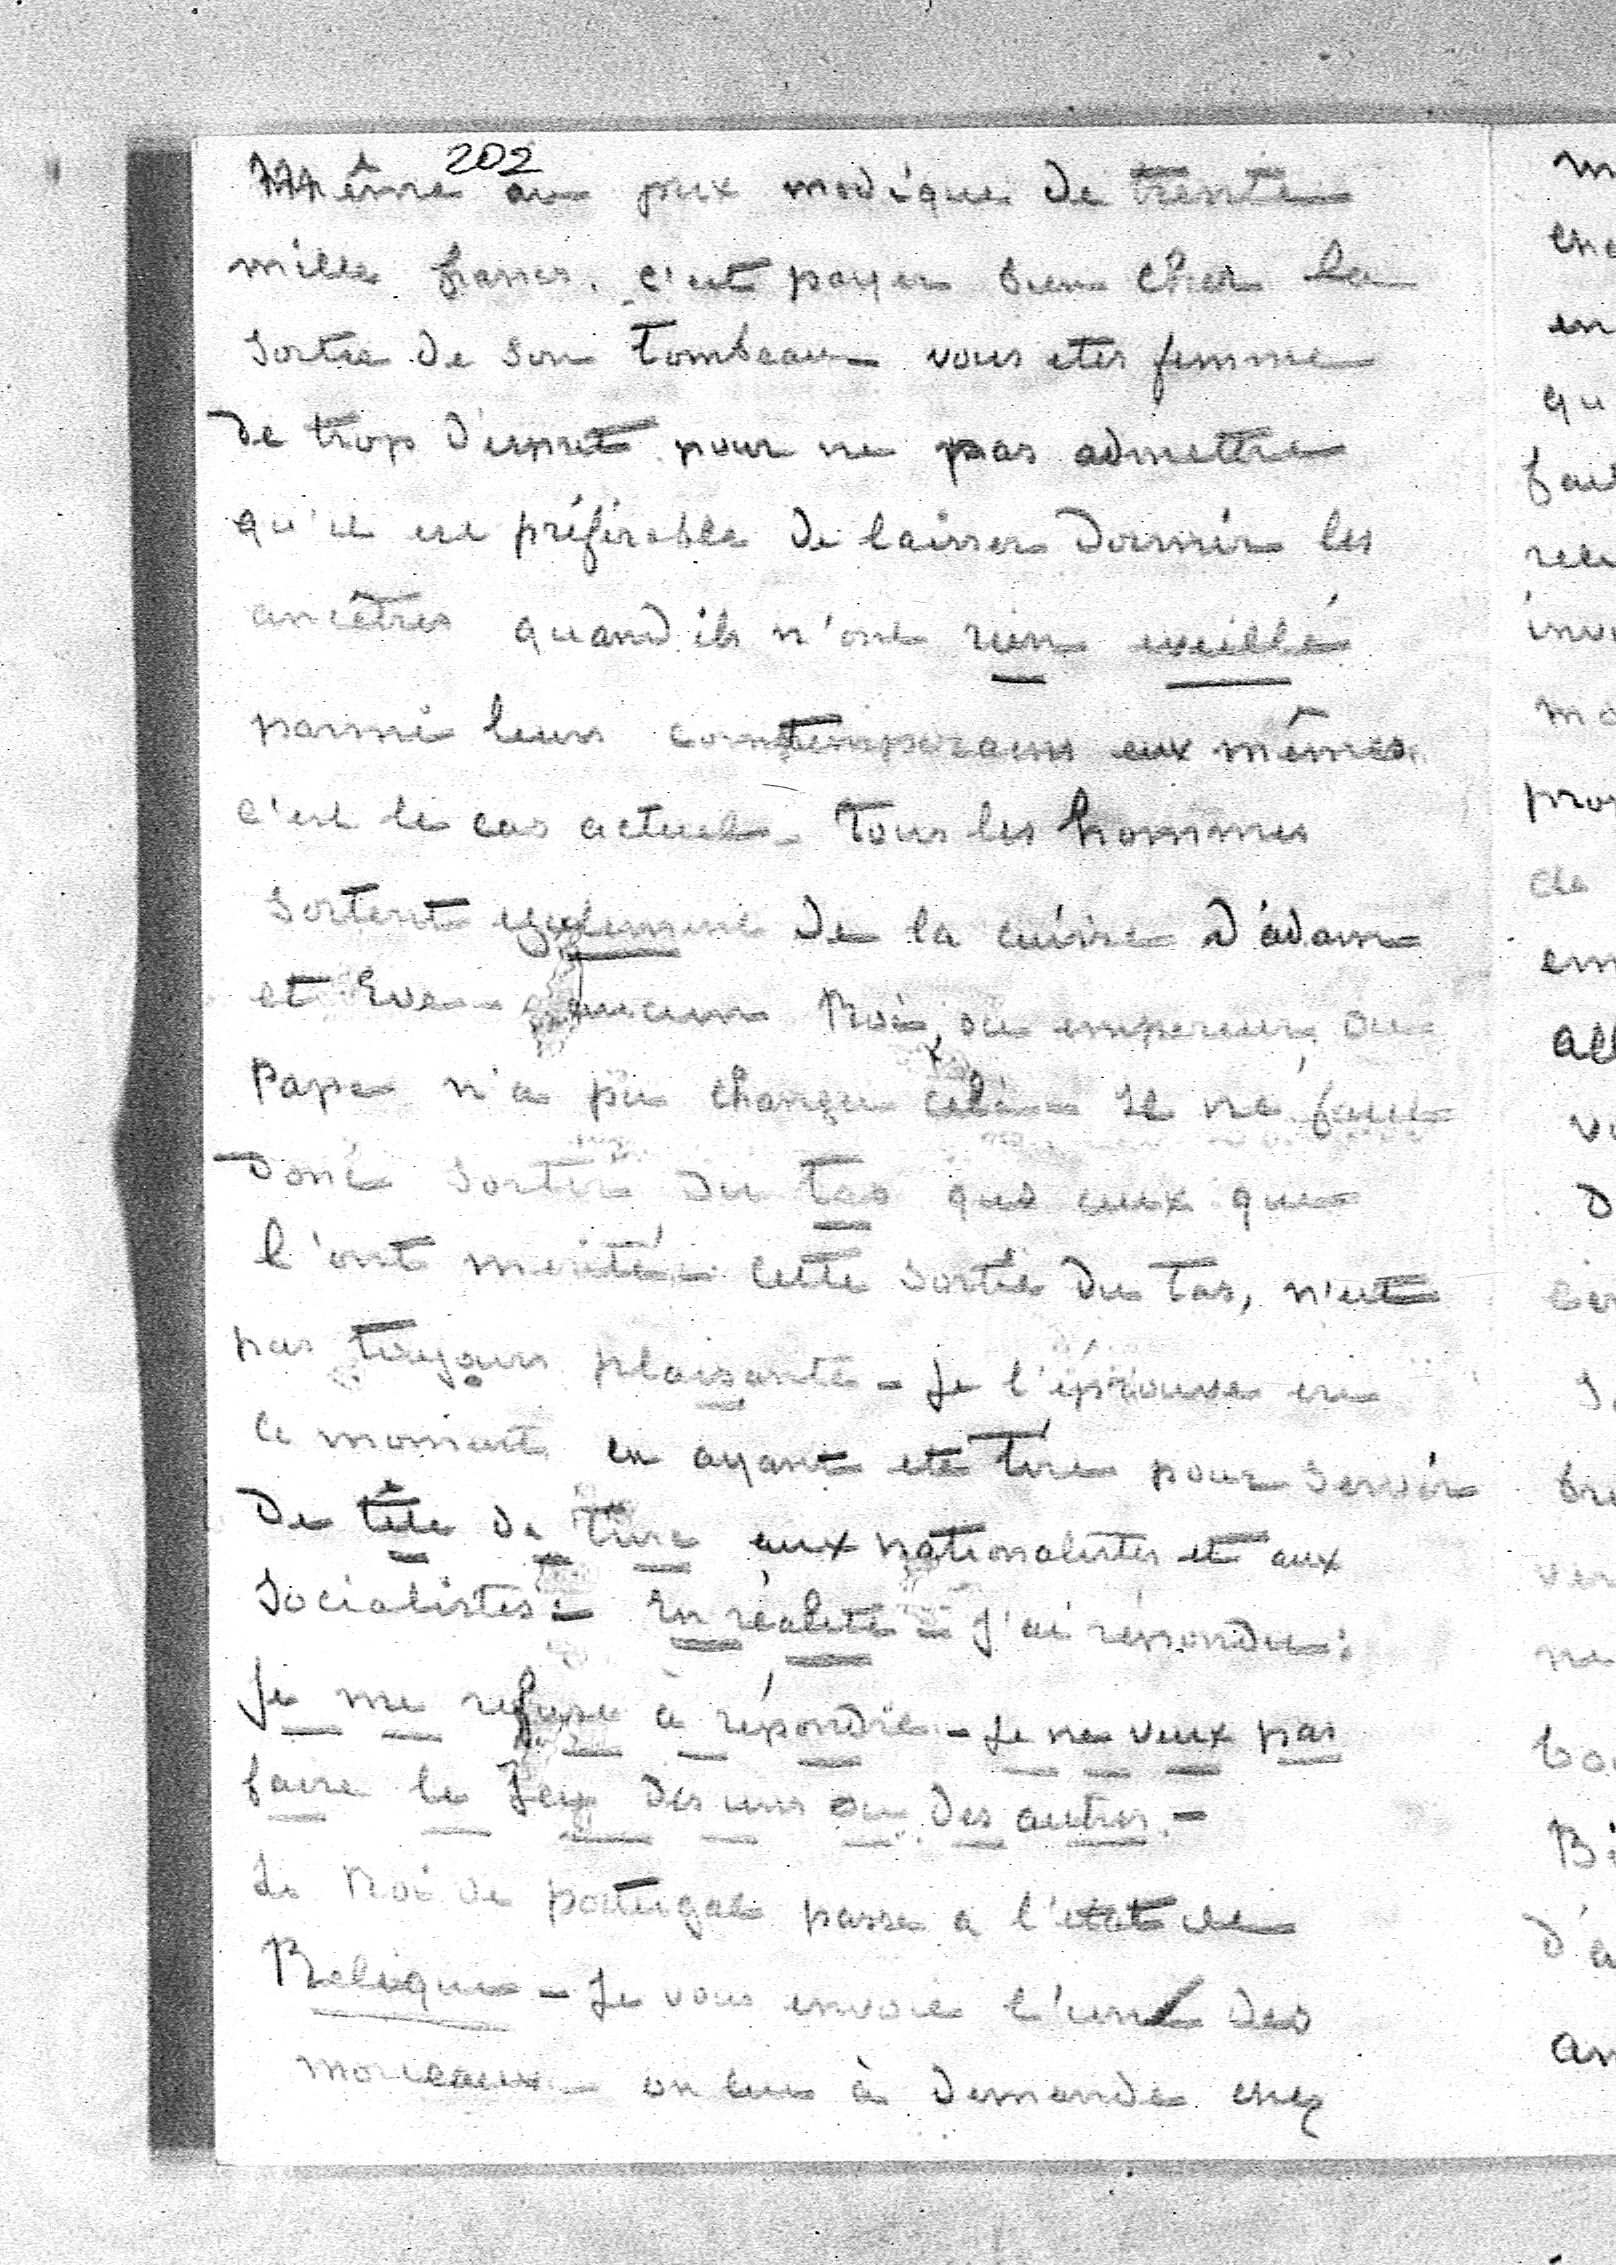 202
Même au prix modique de trente
mille francs. c'est payer bien cher la
sortie de son tombeau - vous etes femme
de trop d'esprit pour ne pas admettre
qu'il est préférable de laisser dormir les
ancêtres quand ils n'ont rien eveillé
parmi leurs contemporains eux mêmes.
c'est le cas actuel - Tous les hommes
sortent egalement de la cuisse d'adam
et Eve - aucun Roi, ou empereur, ou
Pape n'a pu changer celà - Il ne faut
donc sortir du tas que ceux que
l'ont merité - cette sortie du Tas, n'est
pas toujours plaisante - Je l'éprouve en
ce moment en ayant eté tiré pour servir
De tête de turc aux nationalistes et aux
Socialistes - En réalité - J'ai répondu :
Je me refuse à répondre - Je ne veux pas
faire le Jeu des uns ou des autres -
Le Roi de portugal passe a l'etat de
Relique - Je vous envoie l'un des
morceaux - on lui à demandé chez
m
che
en
qu
fai
rel
inv
ma
pro
de
em
all
vo
D
ver
ne
Bi
an